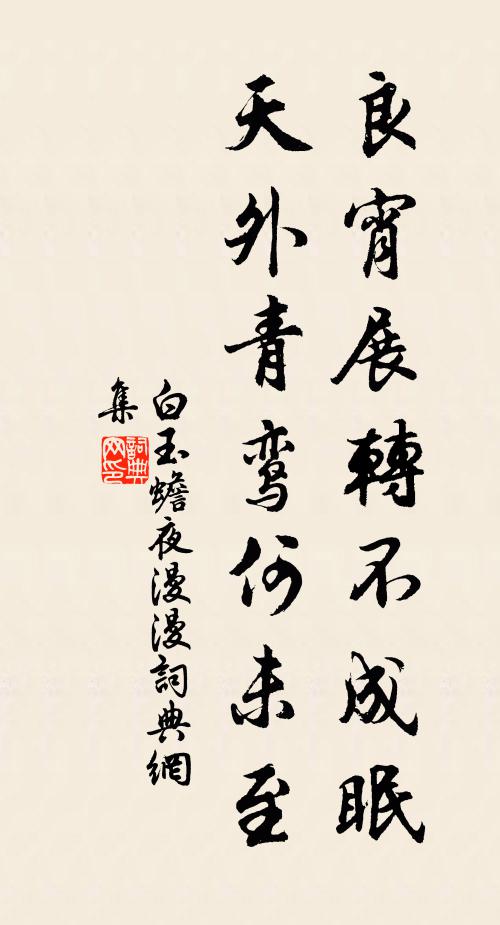 良宵展轉不成眠
天外青鸾何未至
白玉蟾夜漫漫詞典網
集
詞典
网印